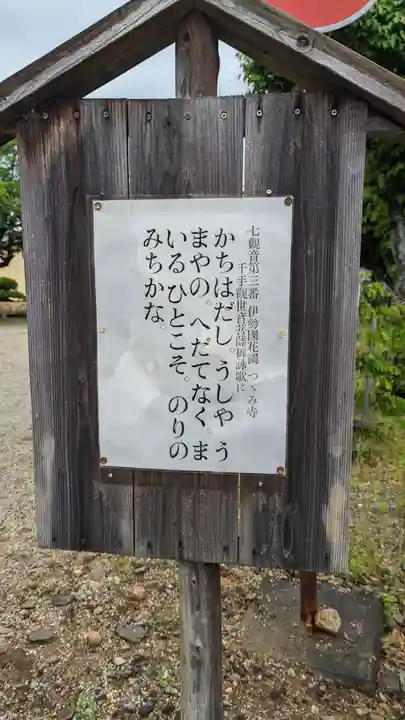 七観音第三番 伊勢國花岡 つゞみ寺
千手觀世音菩薩御詠歌に
かちはだし。うしやう
まやの。へだてなく ま
いる ひとこそ。 のりの
みちかな。